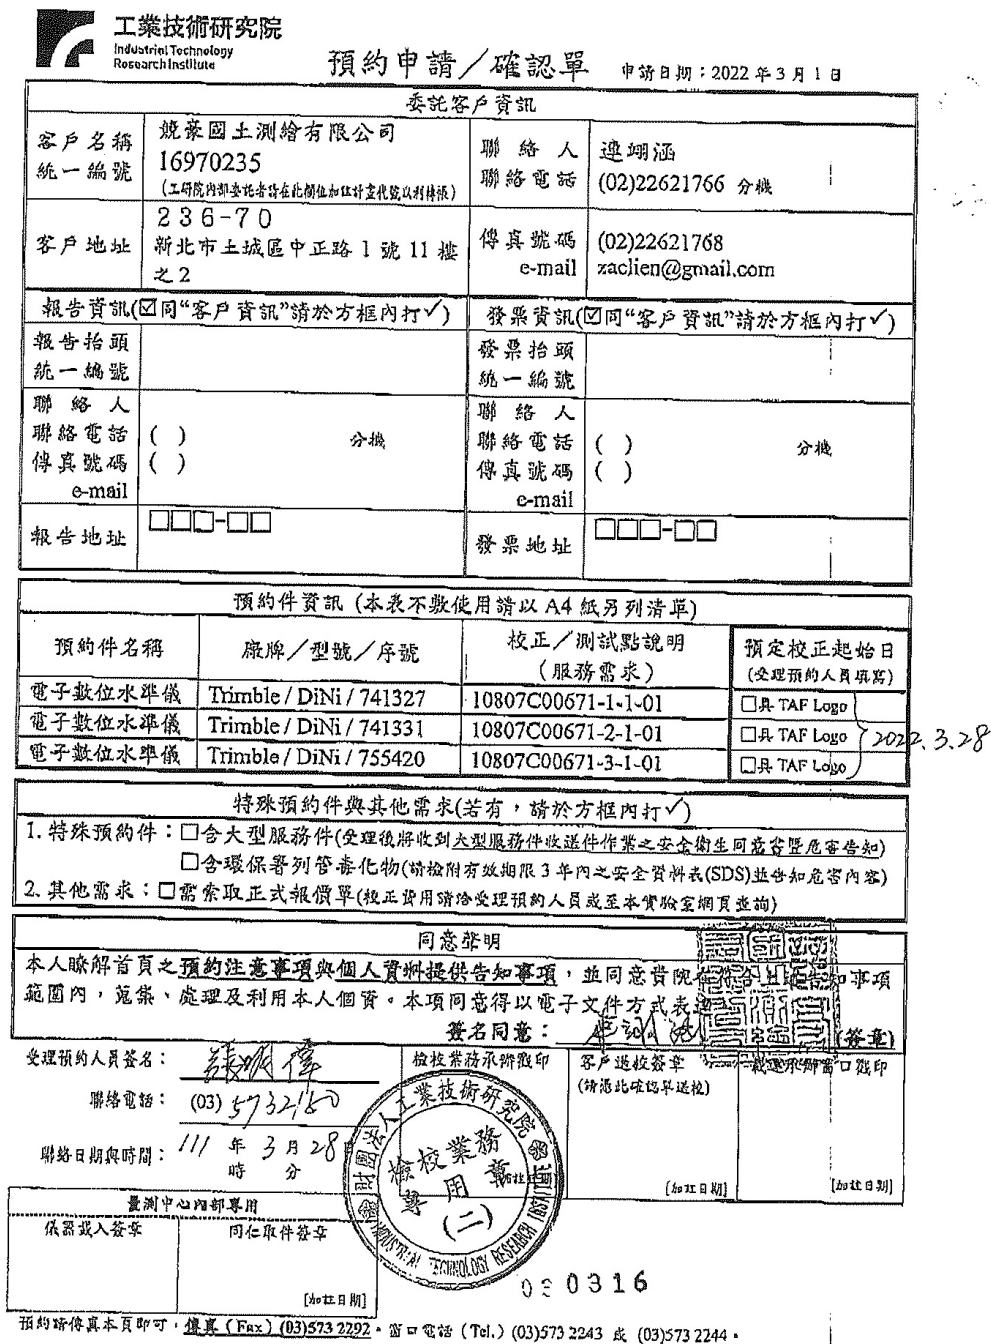 工業技術研究院
Industrial Technology
Research Institute
預約申請／確認單
申請日期：2022 年 3 月 1 日
委託客戶資訊
客戶名稱
統一編號
競豪國土測繪有限公司
16970235
(工研院內部委託者請在此欄位加註計畫代號以利轉帳)
聯絡人
聯絡電話
連翊涵
(02)22621766 分機
客戶地址
236-70
新北市土城區中正路 1 號 11 樓
之 2
傳真號碼
e-mail
(02)22621768
zaclien@gmail.com
報告資訊(☑同“客戶資訊”請於方框內打✓)
發票資訊(☑同“客戶資訊”請於方框內打✓)
報告抬頭
統一編號
發票抬頭
統一編號
聯絡人
聯絡電話 ( ) 分機
傳真號碼 ( )
e-mail
聯絡人
聯絡電話 ( ) 分機
傳真號碼 ( )
e-mail
報告地址 □□□-□□
發票地址 □□□-□□
預約件資訊 (本表不敷使用請以 A4 紙另列清單)
預約件名稱
廠牌／型號／序號
校正／測試點說明
(服務需求)
預定校正起始日
(受理預約人員填寫)
電子數位水準儀 Trimble / DiNi / 741327 10807C00671-1-1-01 □具 TAF Logo
電子數位水準儀 Trimble / DiNi / 741331 10807C00671-2-1-01 □具 TAF Logo
電子數位水準儀 Trimble / DiNi / 755420 10807C00671-3-1-01 □具 TAF Logo
2022.3.28
特殊預約件與其他需求(若有，請於方框內打✓)
1. 特殊預約件：□含大型服務件(受理後將收到大型服務件收送件作業之安全衛生同意書暨危害告知)
□含環保署列管毒化物(請檢附有效期限 3 年內之安全資料表(SDS)並告知危害內容)
2. 其他需求：□需索取正式報價單(校正費用請洽受理預約人員或至本實驗室網頁查詢)
同意聲明
本人瞭解首頁之預約注意事項與個人資料提供告知事項，並同意貴院 知事項
範圍內，蒐集、處理及利用本人個資。本項同意得以電子文件方式表達
簽名同意： (簽章)
受理預約人員簽名：
聯絡電話： (03) 5732160
聯絡日期與時間： 111 年 3 月 28 日
時 分
檢校業務承辦戳印
客戶送校簽章
(請憑此確認單送校)
戳印
[加註日期]
[加註日期]
財團法人工業技術研究院
INDUSTRIAL TECHNOLOGY RESEARCH INSTITUTE
檢校業務
專用章
(二)
量測中心內部專用
儀器載入簽章
同仁取件簽章
[加註日期]
030316
預約請傳真本頁即可，傳真 ( Fax ) (03)573 2292。窗口電話 ( Tel. ) (03)573 2243 或 (03)573 2244。